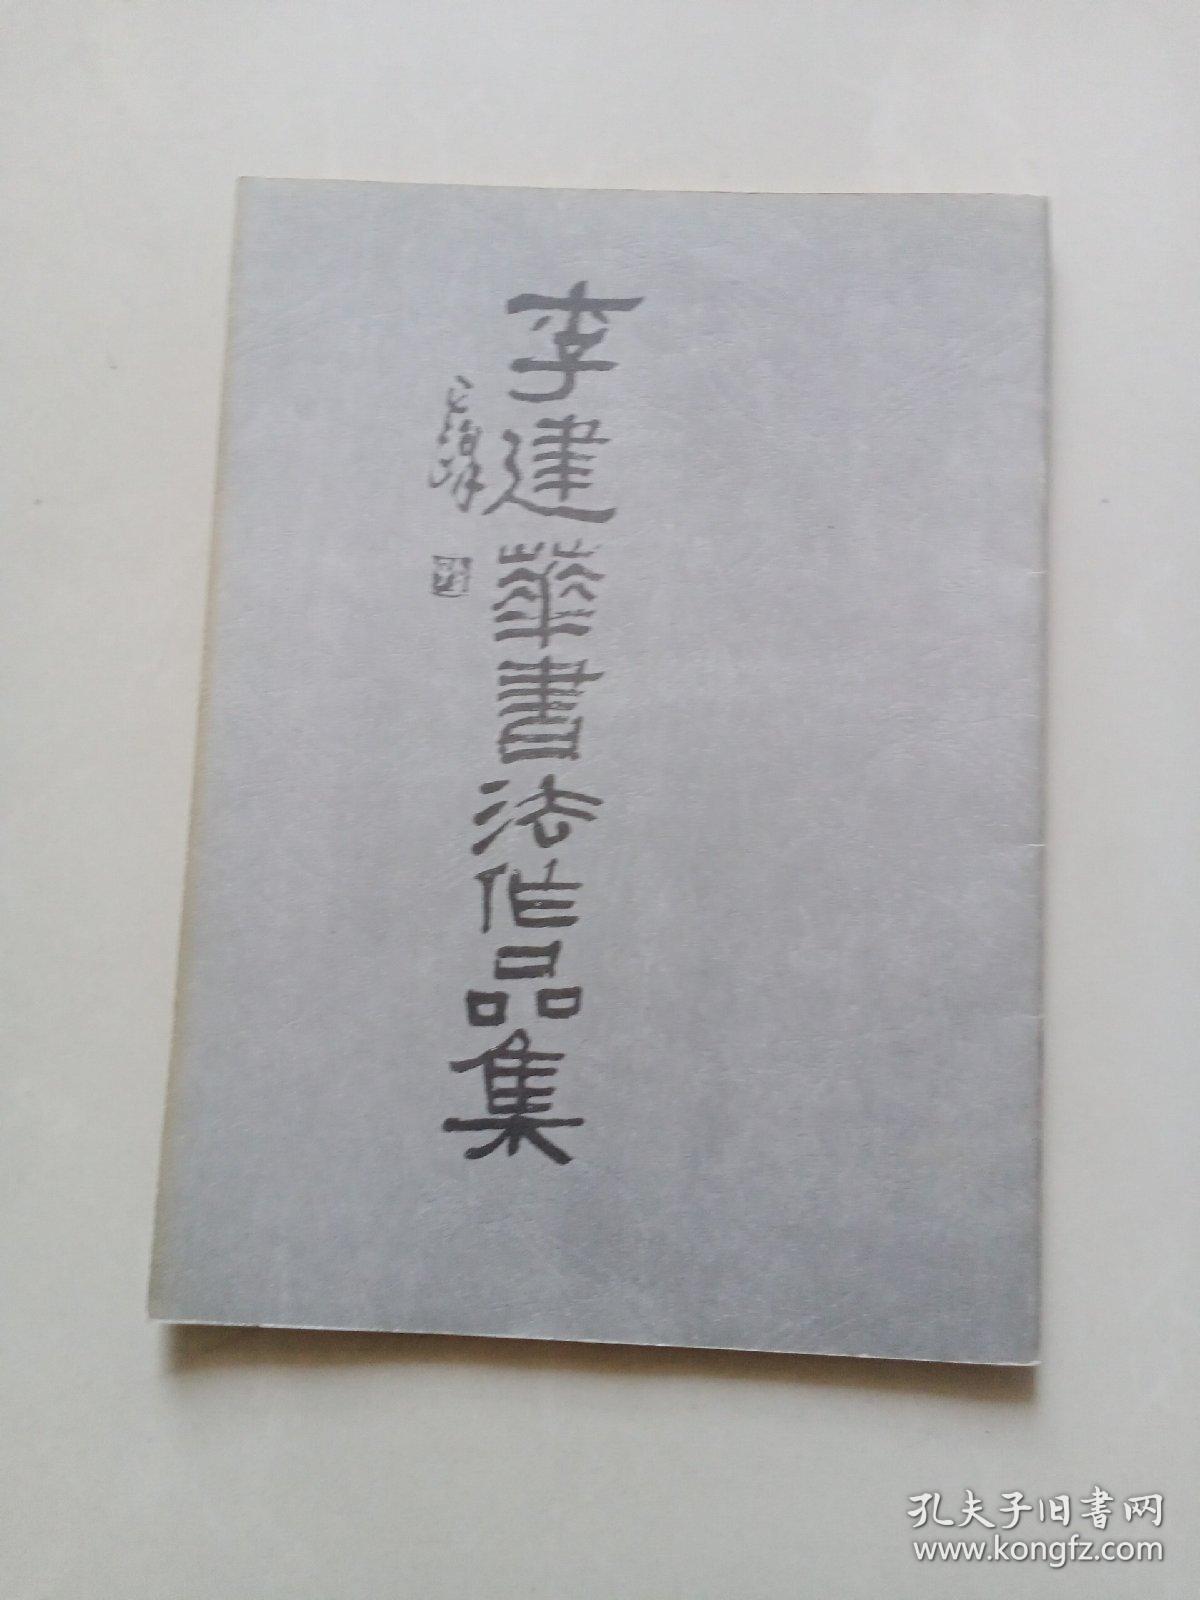 李建華書法作品集
孔夫子旧書网
www.kongfz.com